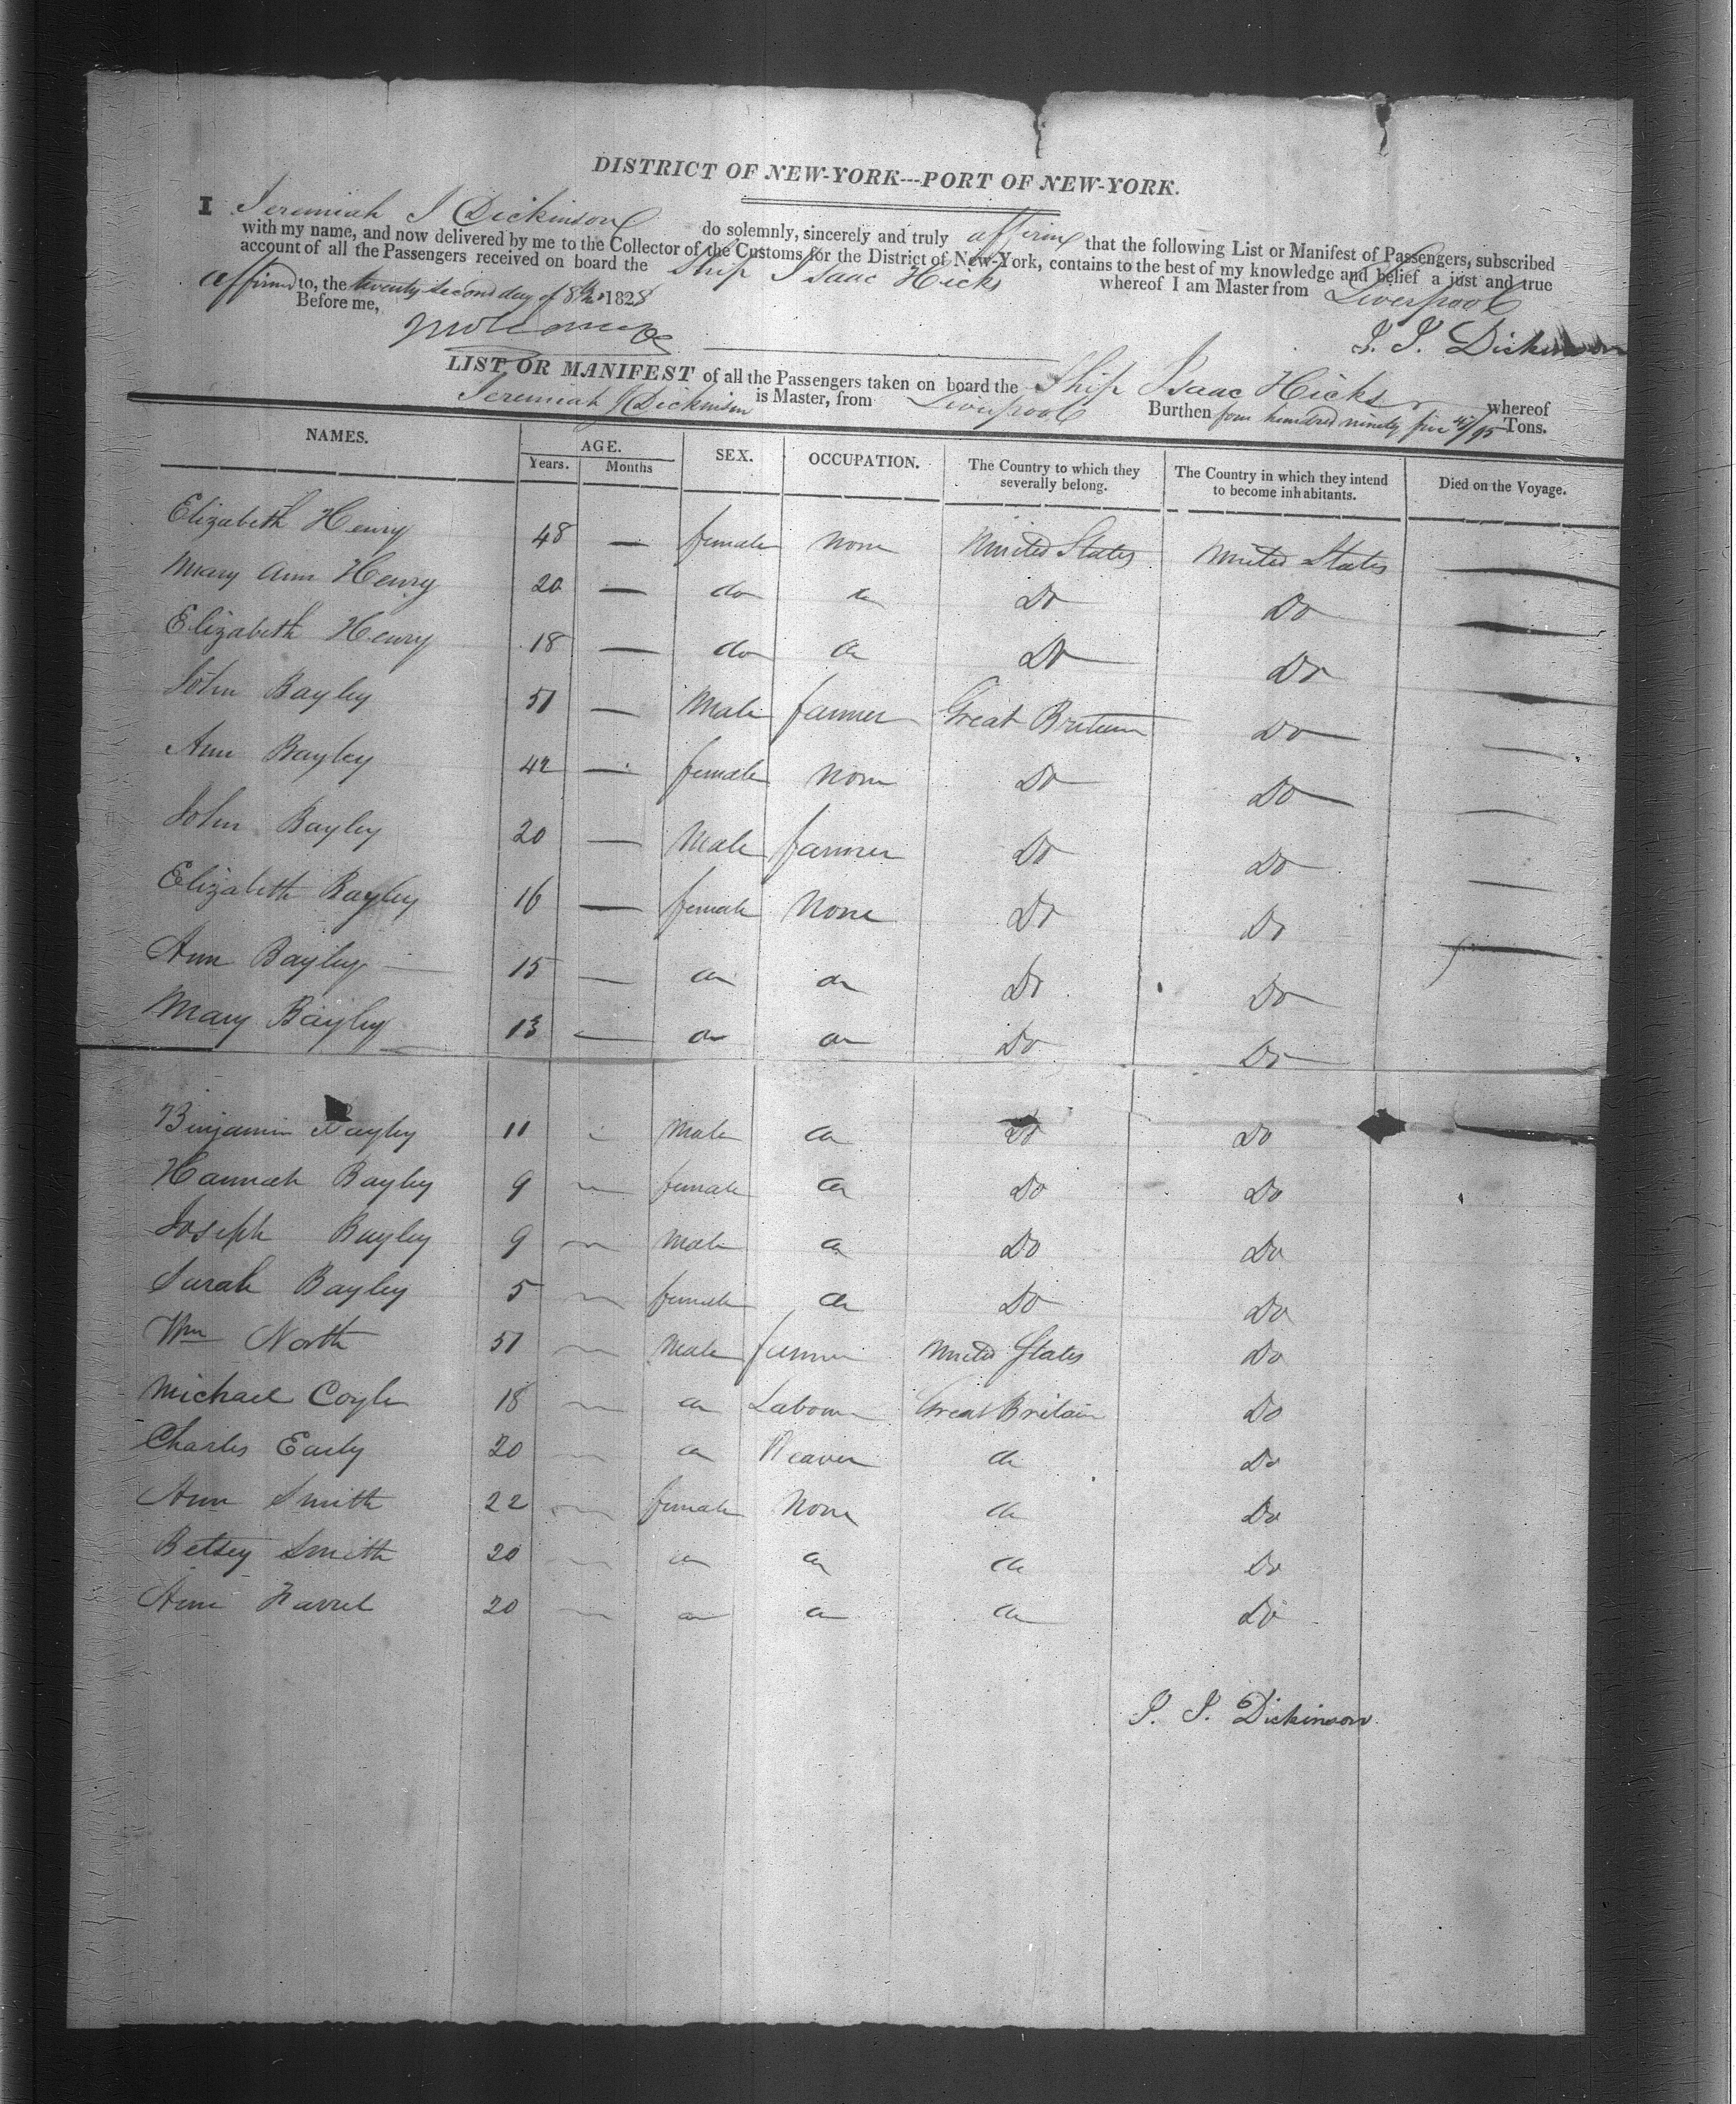 DISTRICT OF NEW-YORK---PORT OF NEW-YORK.
I Jeremiah J Dickinson do solemnly, sincerely and truly affirm that the following List or Manifest of Passengers, subscribed
with my name, and now delivered by me to the Collector of the Customs for the District of New-York, contains to the best of my knowledge and belief a just and true
account of all the Passengers received on board the Ship Isaac Hicks whereof I am Master from Liverpool
affirmed to, the twenty second day of 1828
Before me,
J. J. Dickinson
LIST OR MANIFEST of all the Passengers taken on board the Ship Isaac Hicks whereof
Jeremiah J Dickinson is Master, from Liverpool Burthen four hundred ninety five /95 Tons.
NAMES. AGE. SEX. OCCUPATION. The Country to which they severally belong. The Country in which they intend to become inhabitants. Died on the Voyage.
Years. Months
Elizabeth Henry 48 — female none United States United States —
Mary Ann Henry 20 — do do Do Do —
Elizabeth Henry 18 — do do Do Do —
John Bayley 51 — Male farmer Great Britain Do —
Ann Bayley 42 — female none Do Do —
John Bayley 20 — Male farmer Do Do —
Elizabeth Bayley 16 — female None Do Do —
Ann Bayley 15 — do do Do Do
Mary Bayley 13 — do do Do Do
Binjamin Bayley 11 - Male do Do Do —
Hannah Bayley 9 — female do Do Do
Joseph Bayley 9 — Male do Do Do
Sarah Bayley 5 — female do Do Do
Wm North 51 — Male farmer United States Do
Michael Coyle 18 — do Labourer Great Britain Do
Charles Early 20 — do Weaver do Do
Ann Smith 22 — female None do Do
Betsey Smith 20 — do do do Do
Ann Farrel 20 — do do do Do
J. J. Dickinson